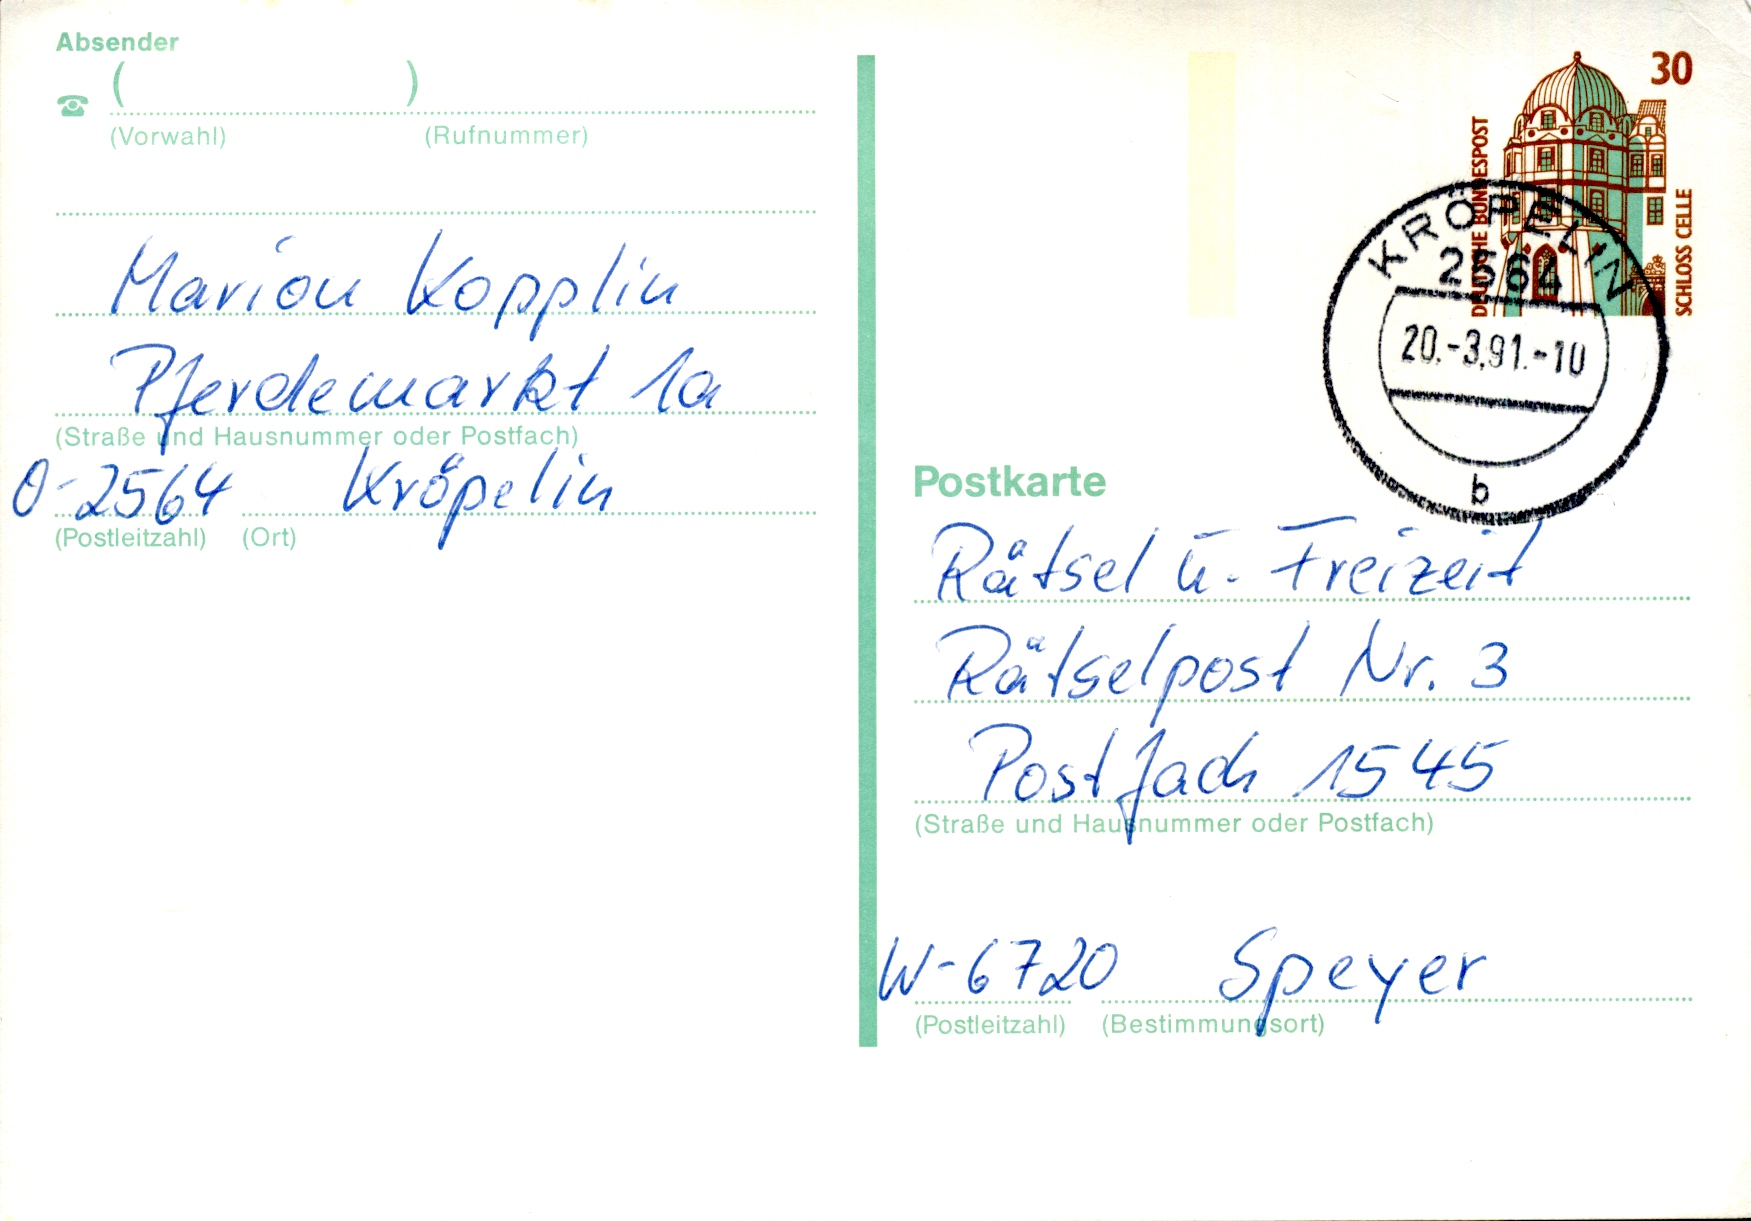 Absender
( )
(Vorwahl) (Rufnummer)
Marion Kopplin
Pferdemarkt 1a
(Straße und Hausnummer oder Postfach)
O-2564 Kröpelin
(Postleitzahl) (Ort)
30
DEUTSCHE BUNDESPOST
SCHLOSS CELLE
KRÖPELIN
2564
20.-3.91.-10
b
Postkarte
Rätsel u. Freizeit
Rätselpost Nr. 3
Postfach 1545
(Straße und Hausnummer oder Postfach)
W-6720 Speyer
(Postleitzahl) (Bestimmungsort)